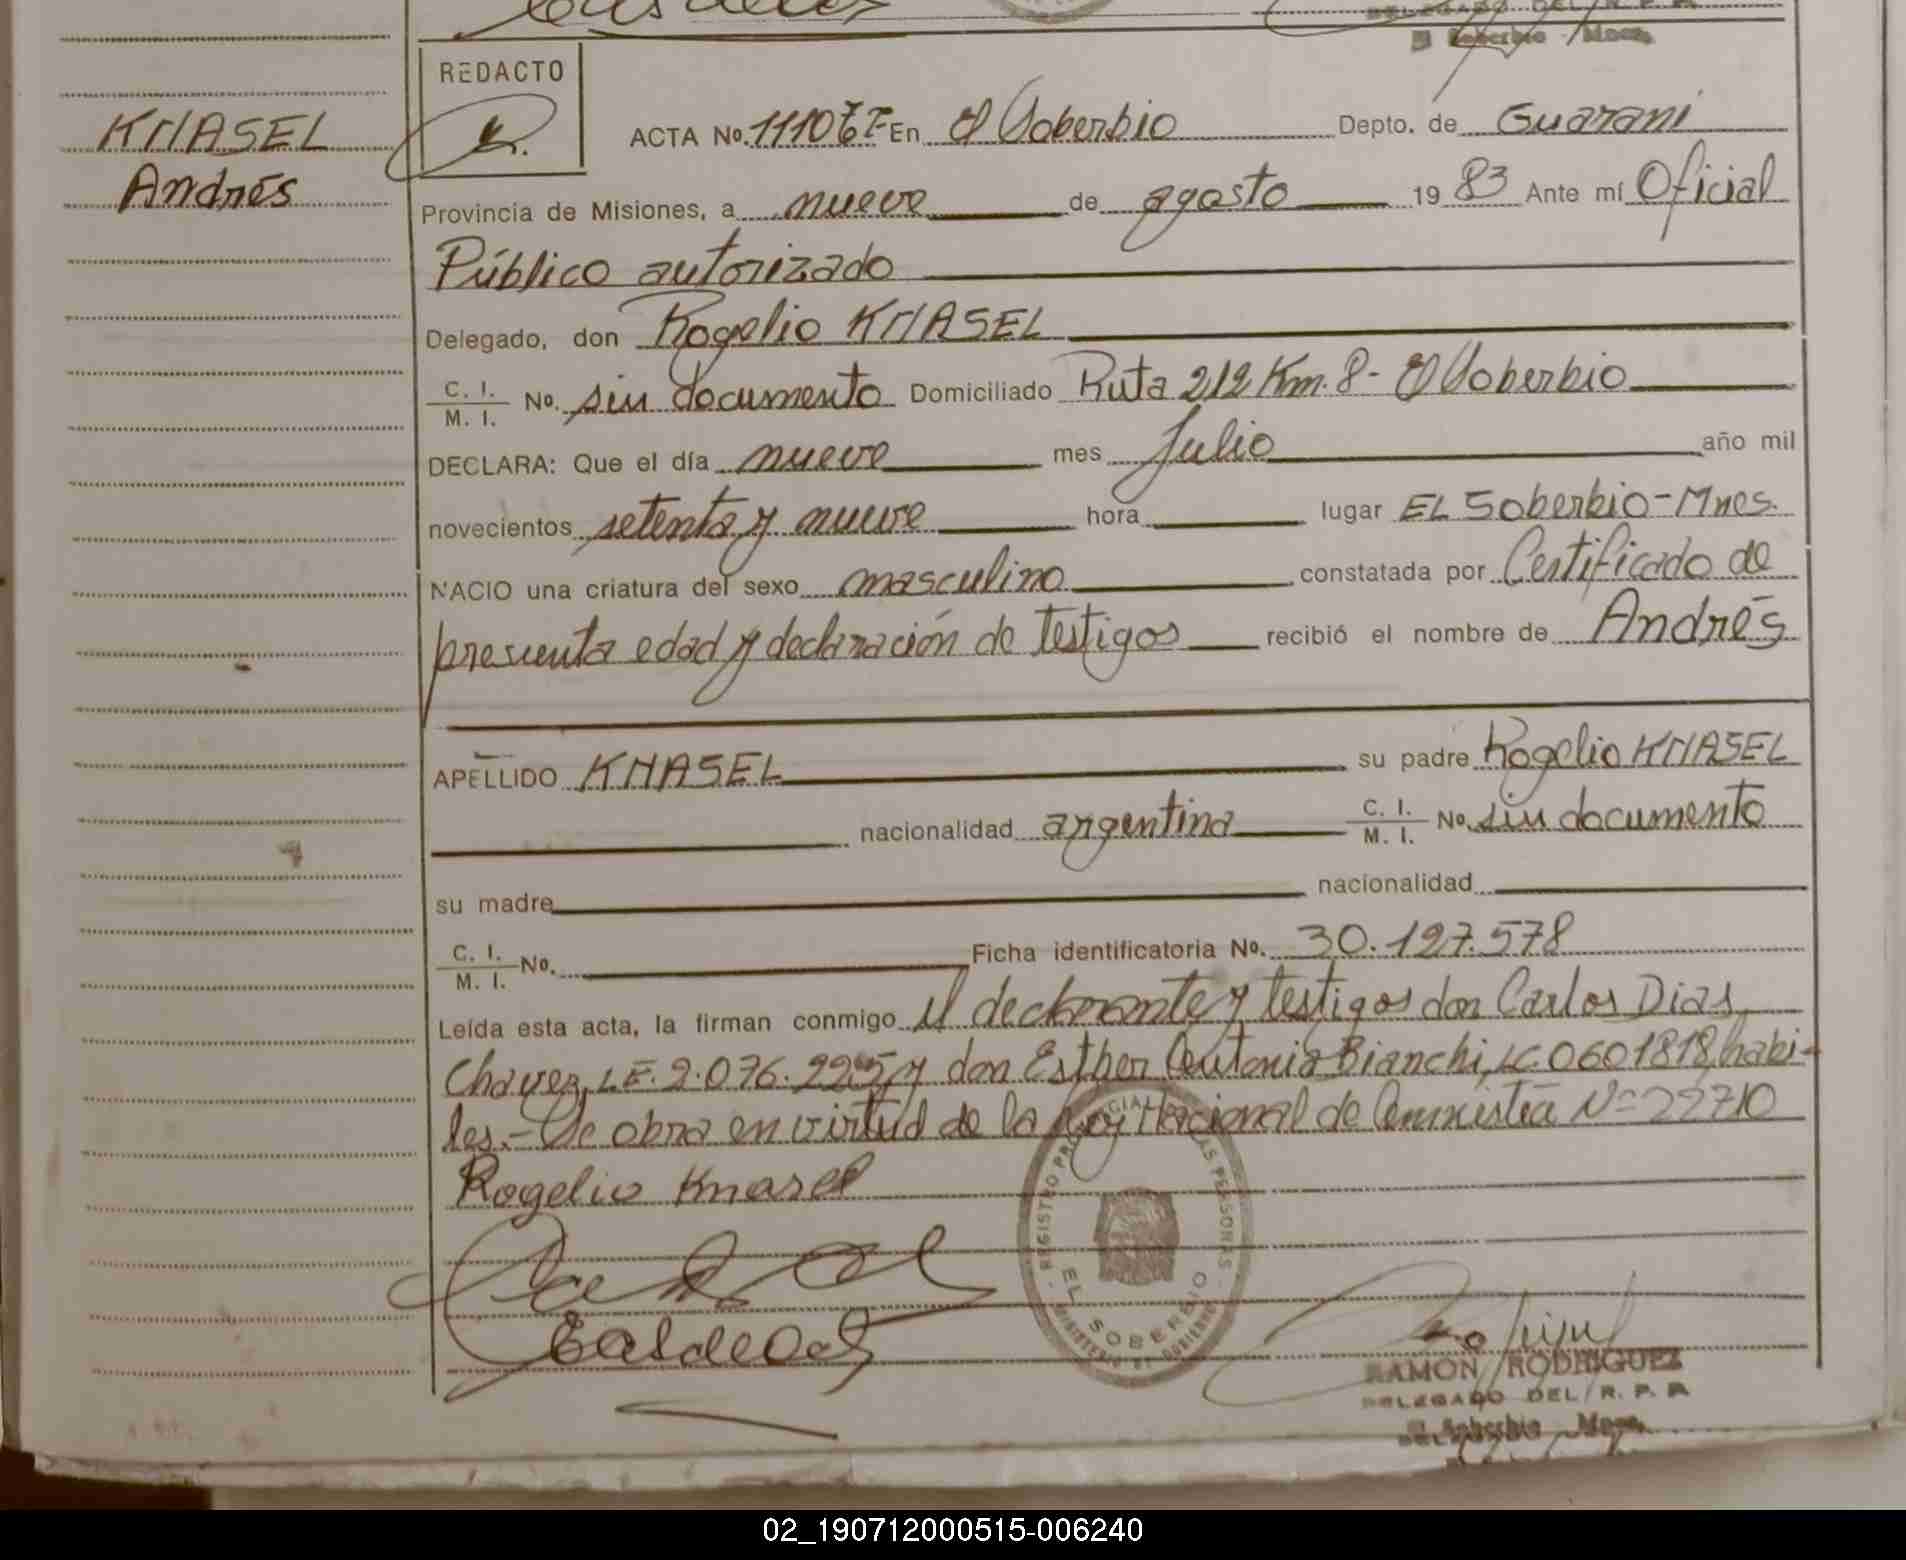 DELEGADO DEL R. P. P.
El Soberbio - Mnes.
REDACTO
KNASEL
Andrés
ACTA No. En El Soberbio Depto. de Guaraní
Provincia de Misiones, a nueve de agosto 1983 Ante mí Oficial
Público autorizado
Delegado, don Rogelio KNASEL
C. I. / M. I. No. sin documento Domiciliado Ruta 212 Km. 8 - El Soberbio
DECLARA: Que el día nueve mes Julio año mil
novecientos setenta y nueve hora lugar EL Soberbio - Mnes.
NACIO una criatura del sexo masculino constatada por Certificado de
presunta edad y declaración de testigos recibió el nombre de Andrés
APELLIDO KNASEL su padre Rogelio KNASEL
nacionalidad argentina C. I. / M. I. No. sin documento
su madre nacionalidad
C. I. / M. I. No. Ficha identificatoria No. 30.127.578
Leída esta acta, la firman conmigo el declarante y testigos don Carlos Dias
Chavez, L.E. 2.076.225 y don Esther Antonia Bianchi, LC. 0601818, habi-
les.- Se obra en virtud de la Ley Nacional de Amnistia Nº 22710
Rogelio Knasel
REGISTRO PROVINCIAL DE LAS PERSONAS
EL SOBERBIO
MINISTERIO DE GOBIERNO
RAMON RODRIGUEZ
DELEGADO DEL R. P. P.
El Soberbio - Mnes.
02_190712000515-006240